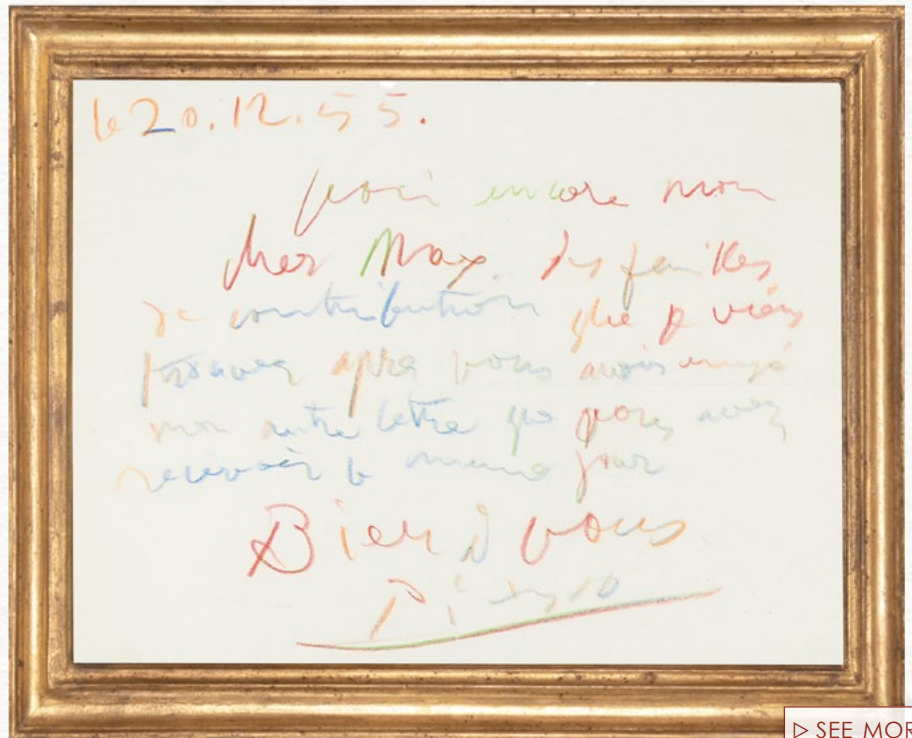 le 20.12.55.
Voici encore mon
cher Max. des feuilles
de contribution que je viens
trouver apres vous avoir envoyé
mon autre lettre que vous avez
recevoir le meme jour
Bien à vous
Picasso
▷ SEE MOR